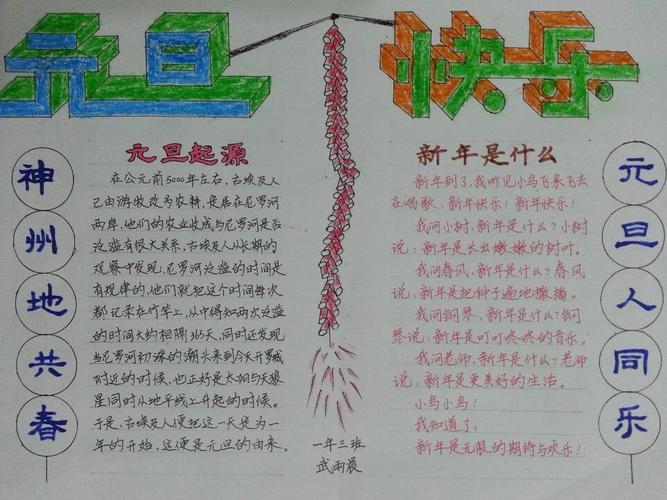 元旦快乐
神州地共春
元旦起源
在公元前5000年左右,古埃及人
已由游牧改为农耕,是居在尼罗河
两岸,他们的农业收成与尼罗河是否
泛滥有很大关系,古埃及人从长期的
观察中发现,尼罗河泛滥的时间是
有规律的,他们就把这个时间每次
都记录在竹竿上,从中得知两次泛滥
的时间大约相隔365天,同时还发现
当尼罗河初涨的潮头来到今天开罗城
附近的时候,也正好是太阳与天狼
星同时从地平线上升起的时候。
于是,古埃及人便把这一天是为一
年的开始,这便是元旦的由来。
一年三班
武雨晨
新年是什么
新年到了,我听见小鸟飞来飞去
在唱歌:新年快乐!新年快乐!
我问小树,新年是什么?小树
说:新年是长出嫩嫩的树叶。
我问春风,新年是什么?春风
说:新年是把种子遍地撒播。
我问钢琴,新年是什么?钢
琴说:新年是叮叮咚咚的音乐。
我问老师,新年是什么?老师
说:新年是更美好的生活。
小鸟小鸟!
我知道了:
新年是无限的期待与欢乐!
元旦人同乐